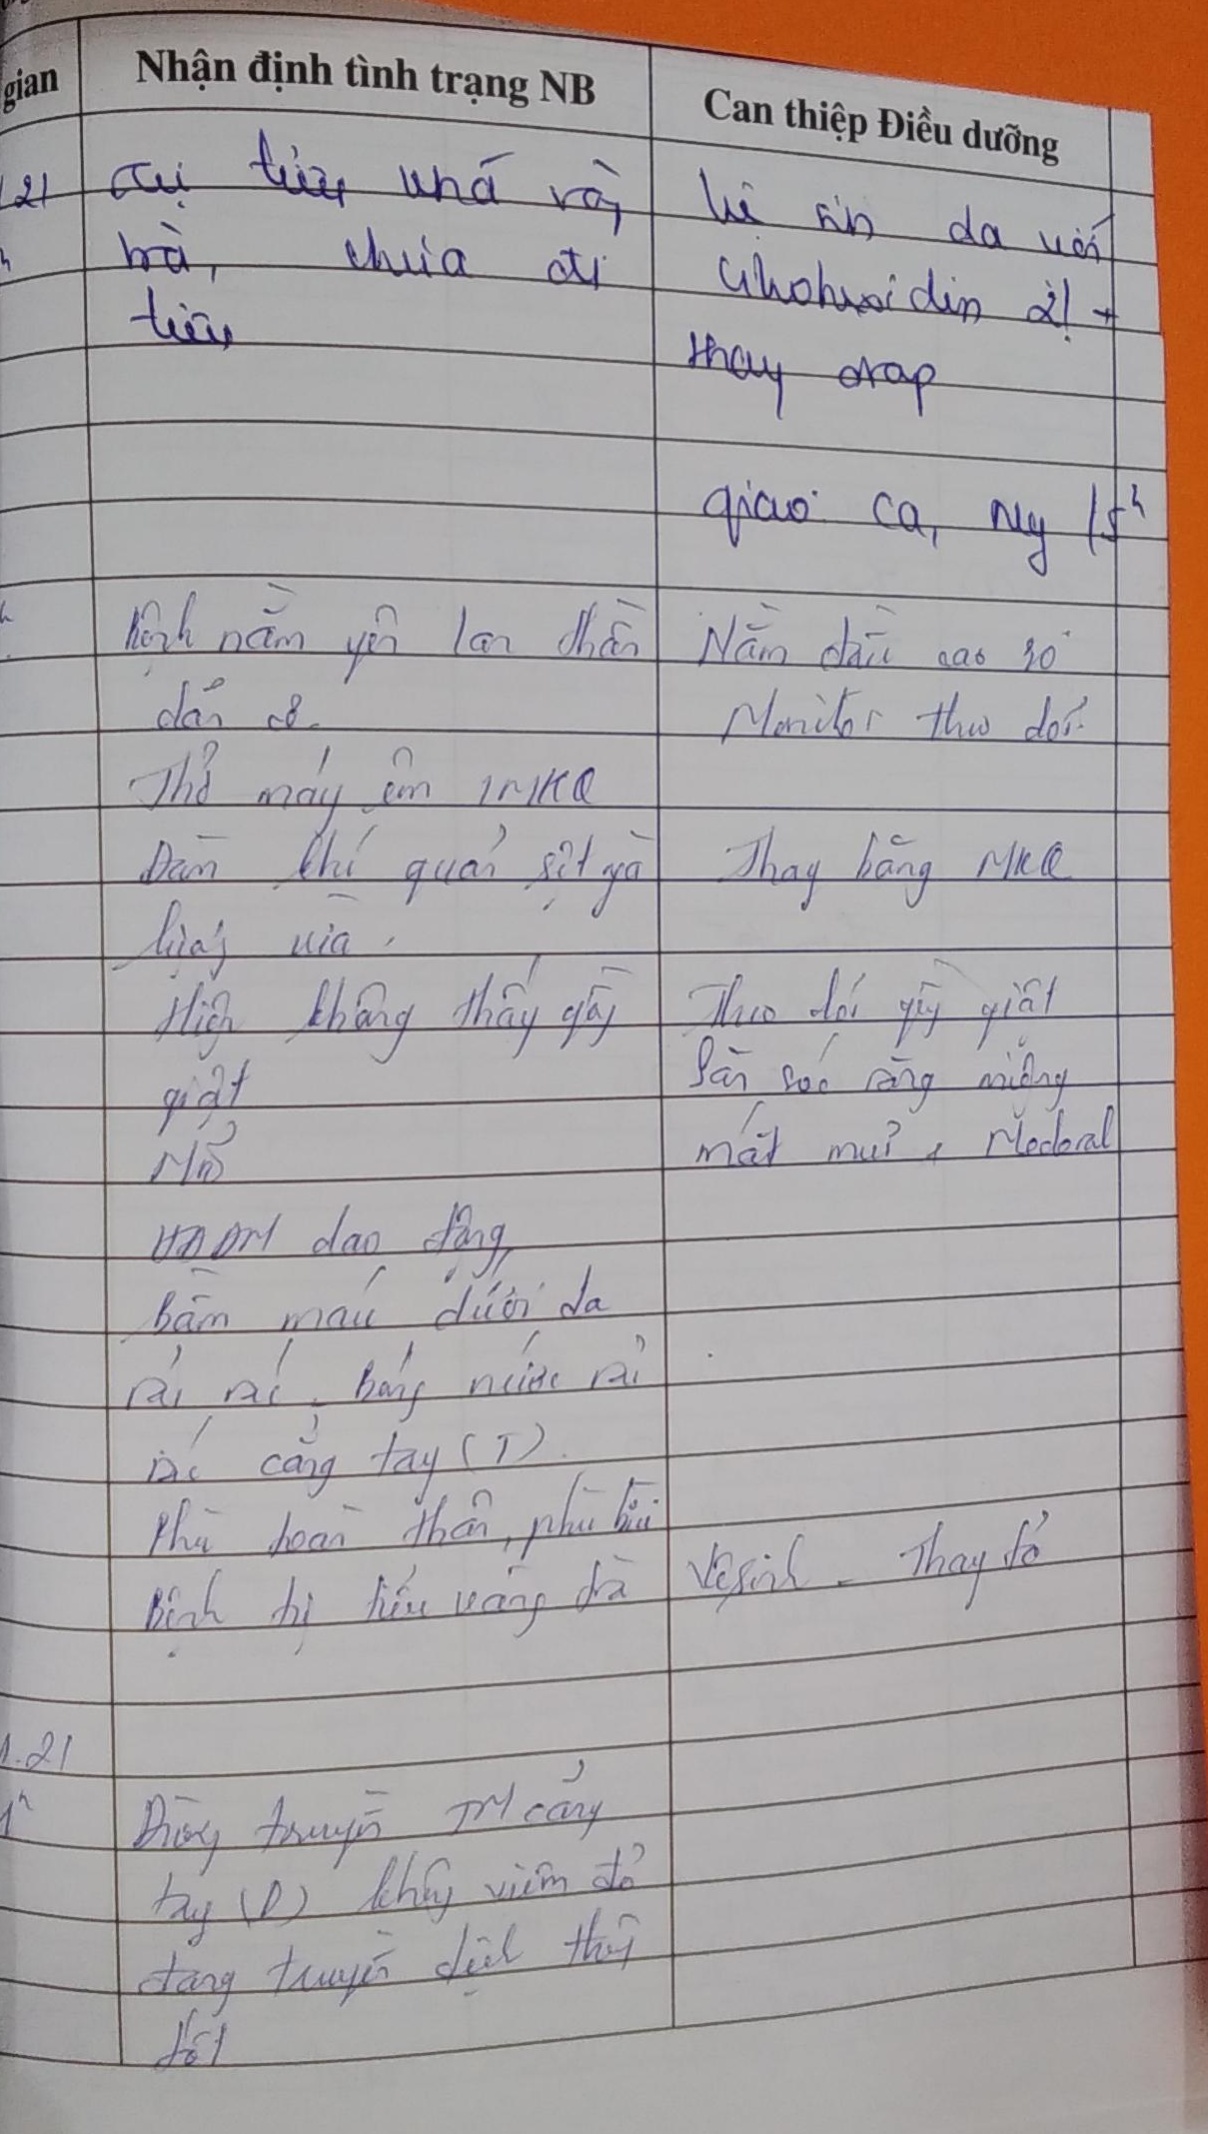 gian
Nhận định tình trạng NB
Can thiệp Điều dưỡng
21
tiểu khá vàng
trà, chưa đi
tiêu
Vệ sinh da với
Chlohexidin 2l +
thay drap
giao ca, Ny 15h
Bệnh nằm yên lan thần
dãn cơ.
Nằm đầu cao 30
Monitor theo dõi
Thở máy êm MKQ
Đàm khí quản sệt
lượng vừa.
Thay băng MKQ
Hiện không thấy gồng
giật
Theo dõi gồng giật
Săn sóc răng miệng
mắt mũi, Medoral
HAĐM dao động
bầm máu dưới da
rải rác. bóng nước rải
rác cẳng tay (T).
Phù toàn thân, phù
Bệnh tự tiểu vàng trà
Vệ sinh - Thay tả
1.21
1h
Đường truyền TM cẳng
tay (P) không viêm đỏ
đang truyền dịch thông
tốt